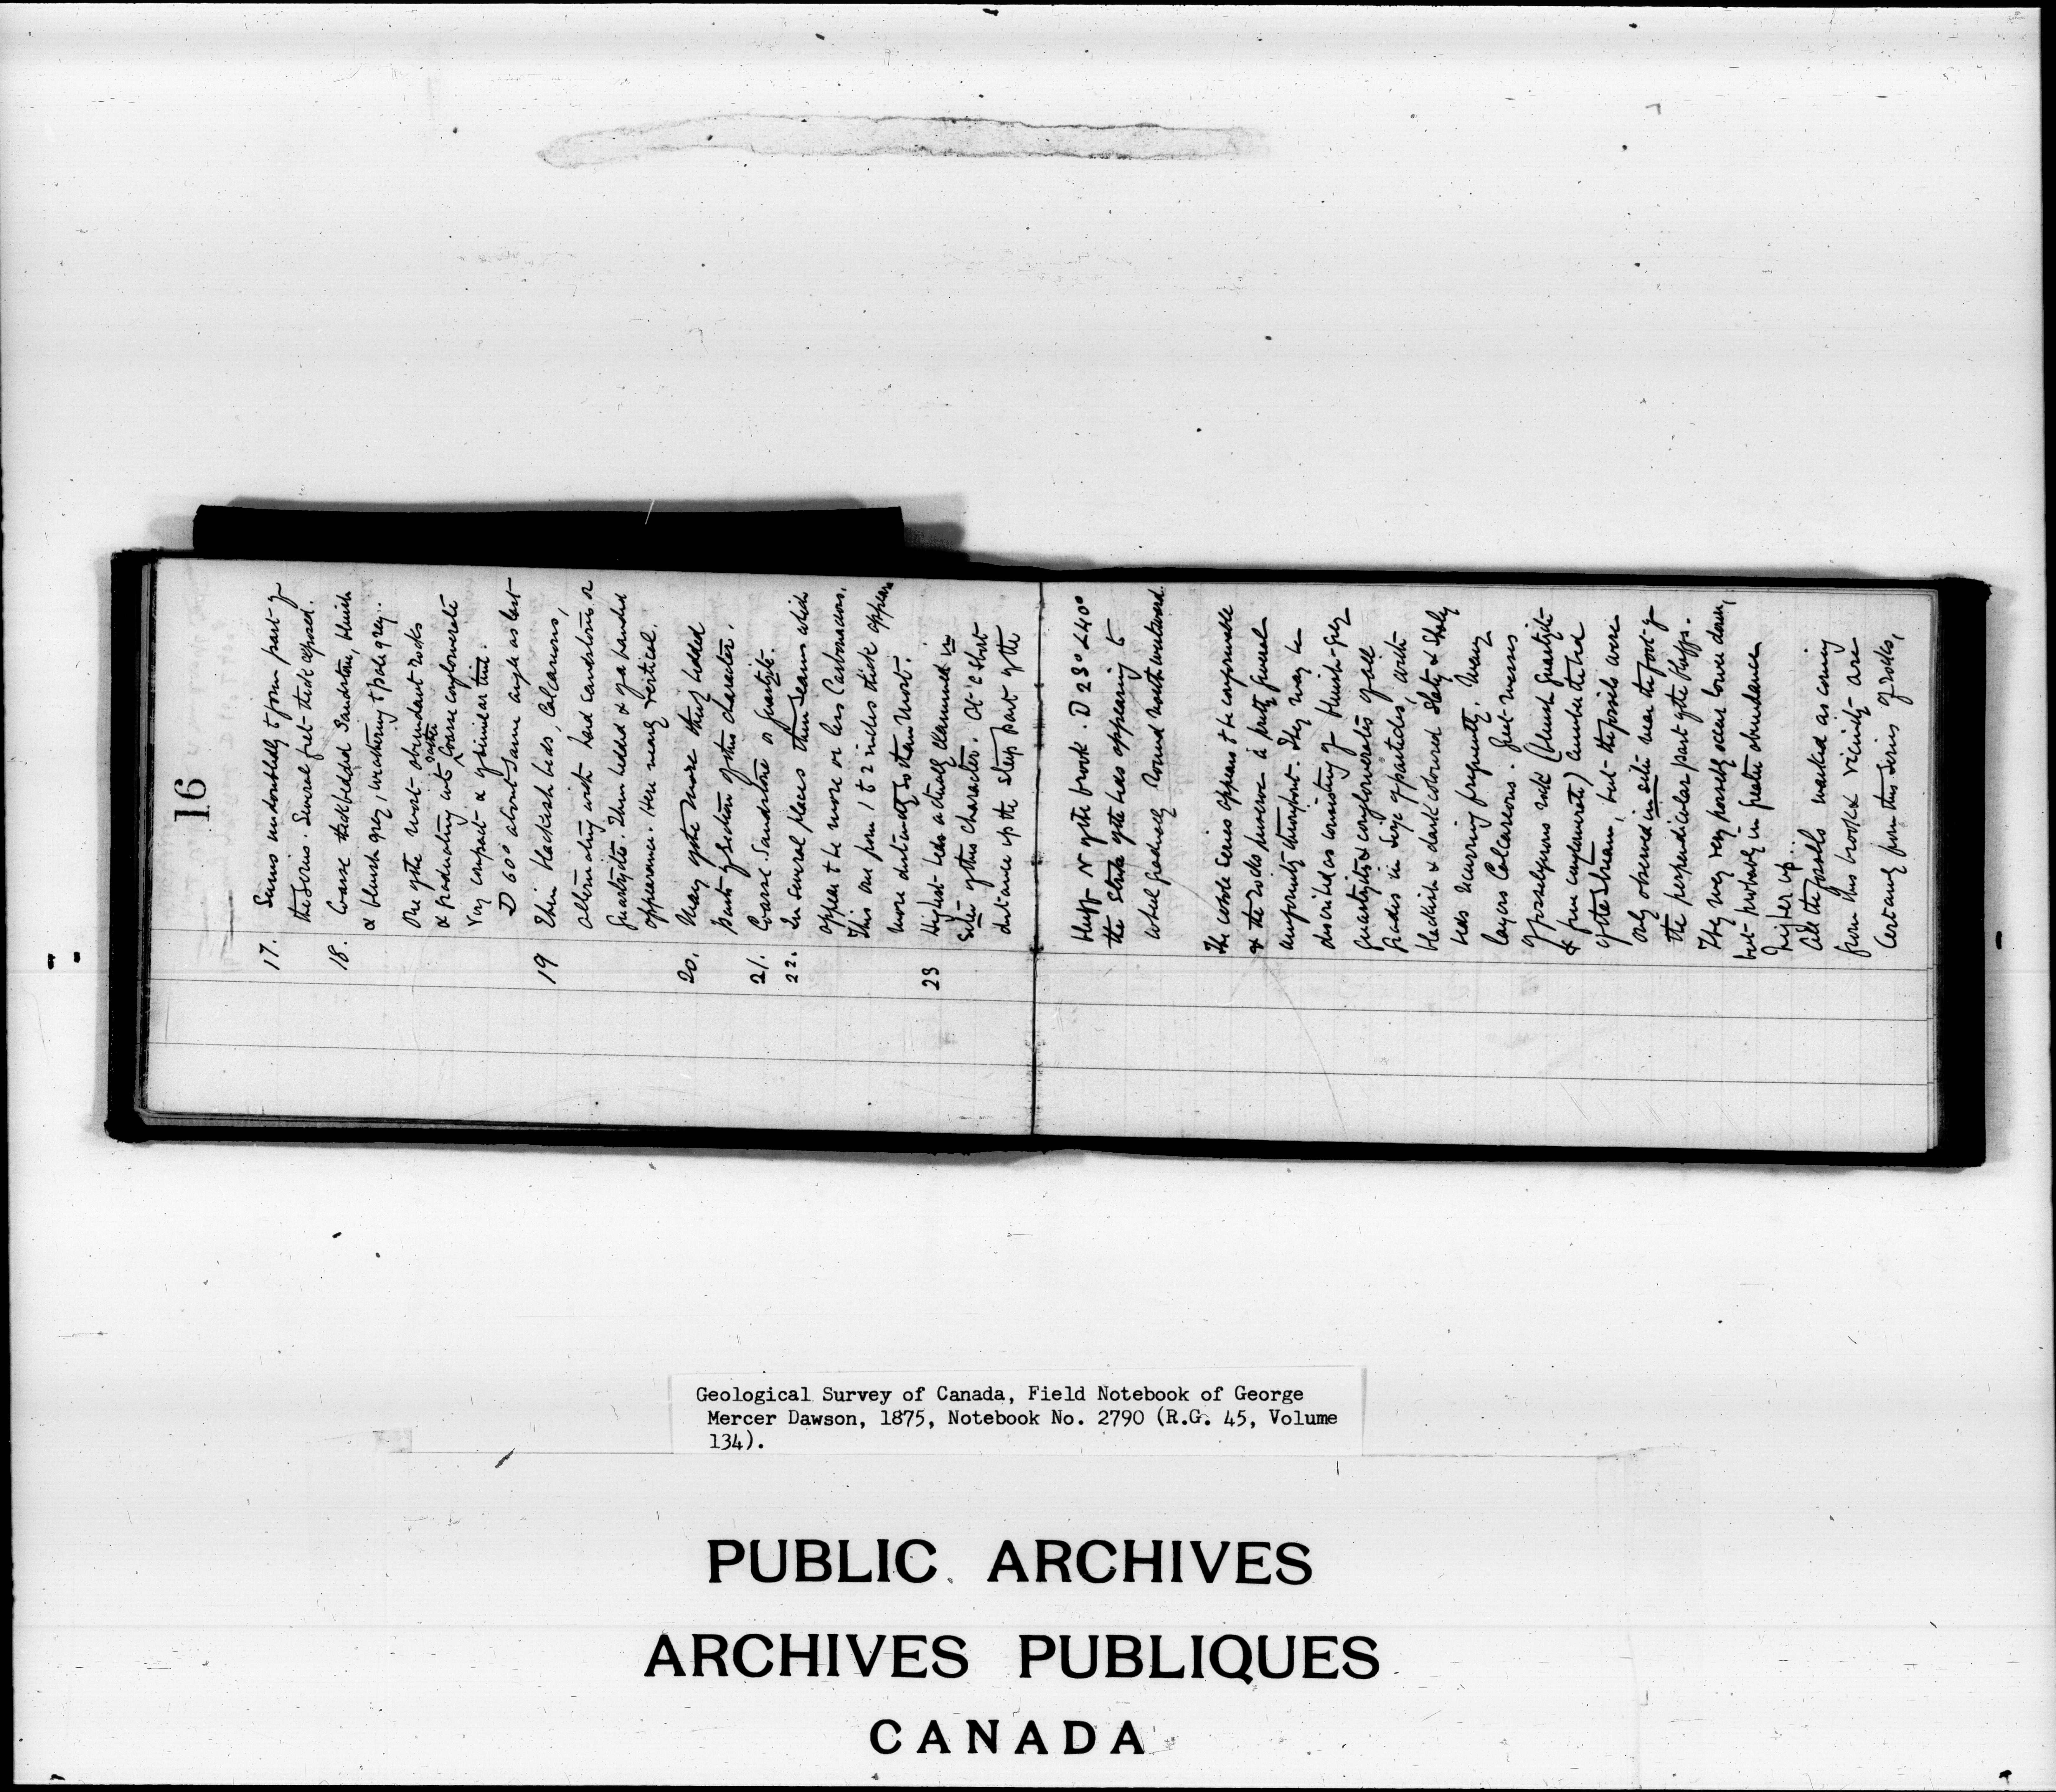 16
17. Seems undoubtedly to form part of
the series. Several feet thick exposed.
18. Coarse thick bedded Sandstone, bluish
& bluish grey, weathering to pale grey.
One of the most abundant rocks
& graduating into rather Coarse conglomerate
Very compact & of similar tint.
D 60° about same angle as last
19 Thin blackish beds Calcareous,
alternating with hard sandstone or
Quartzite. Thin bedded & of a banded
appearance. Here nearly vertical.
20. Many of the more thinly bedded
parts of section of this character.
21. Coarse Sandstone or quartzite.
22. In several places thin seams which
appear to be more or less Carbonaceous.
This one from 1 to 2 inches thick appears
more distinctly so than most.
23 Highest beds actually examined in
Situ of this character. At a short
distance up the steep part of the
bluff N of the brook. D 23° < 40°
the Strike of the beds appearing to
wheel gradually round north westward.
The whole series appears to be conformable
& the rocks preserve a pretty general
uniformity throughout. They may be
described as consisting of bluish-grey
quartzites & conglomerates of all
grades in size of particles, with
blackish & dark coloured Slaty & Shaly
beds recurring frequently. Many
layers Calcareous. Great masses
of fossiliferous rock (bluish quartzite
& fine conglomerate) cumber the bed
of the stream, but the fossils were
only observed in situ near the foot of
the perpendicular part of the bluffs.
They may very possibly occur lower down,
but probably in greater abundance
higher up.
All the fossils marked as coming
from this brook & vicinity are
Certainly from this series of rocks,
Geological Survey of Canada, Field Notebook of George
Mercer Dawson, 1875, Notebook No. 2790 (R.G. 45, Volume
134).
PUBLIC ARCHIVES
ARCHIVES PUBLIQUES
CANADA